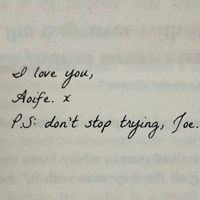 I love you,
Aoife. x
P.S: don't stop trying, Joe.